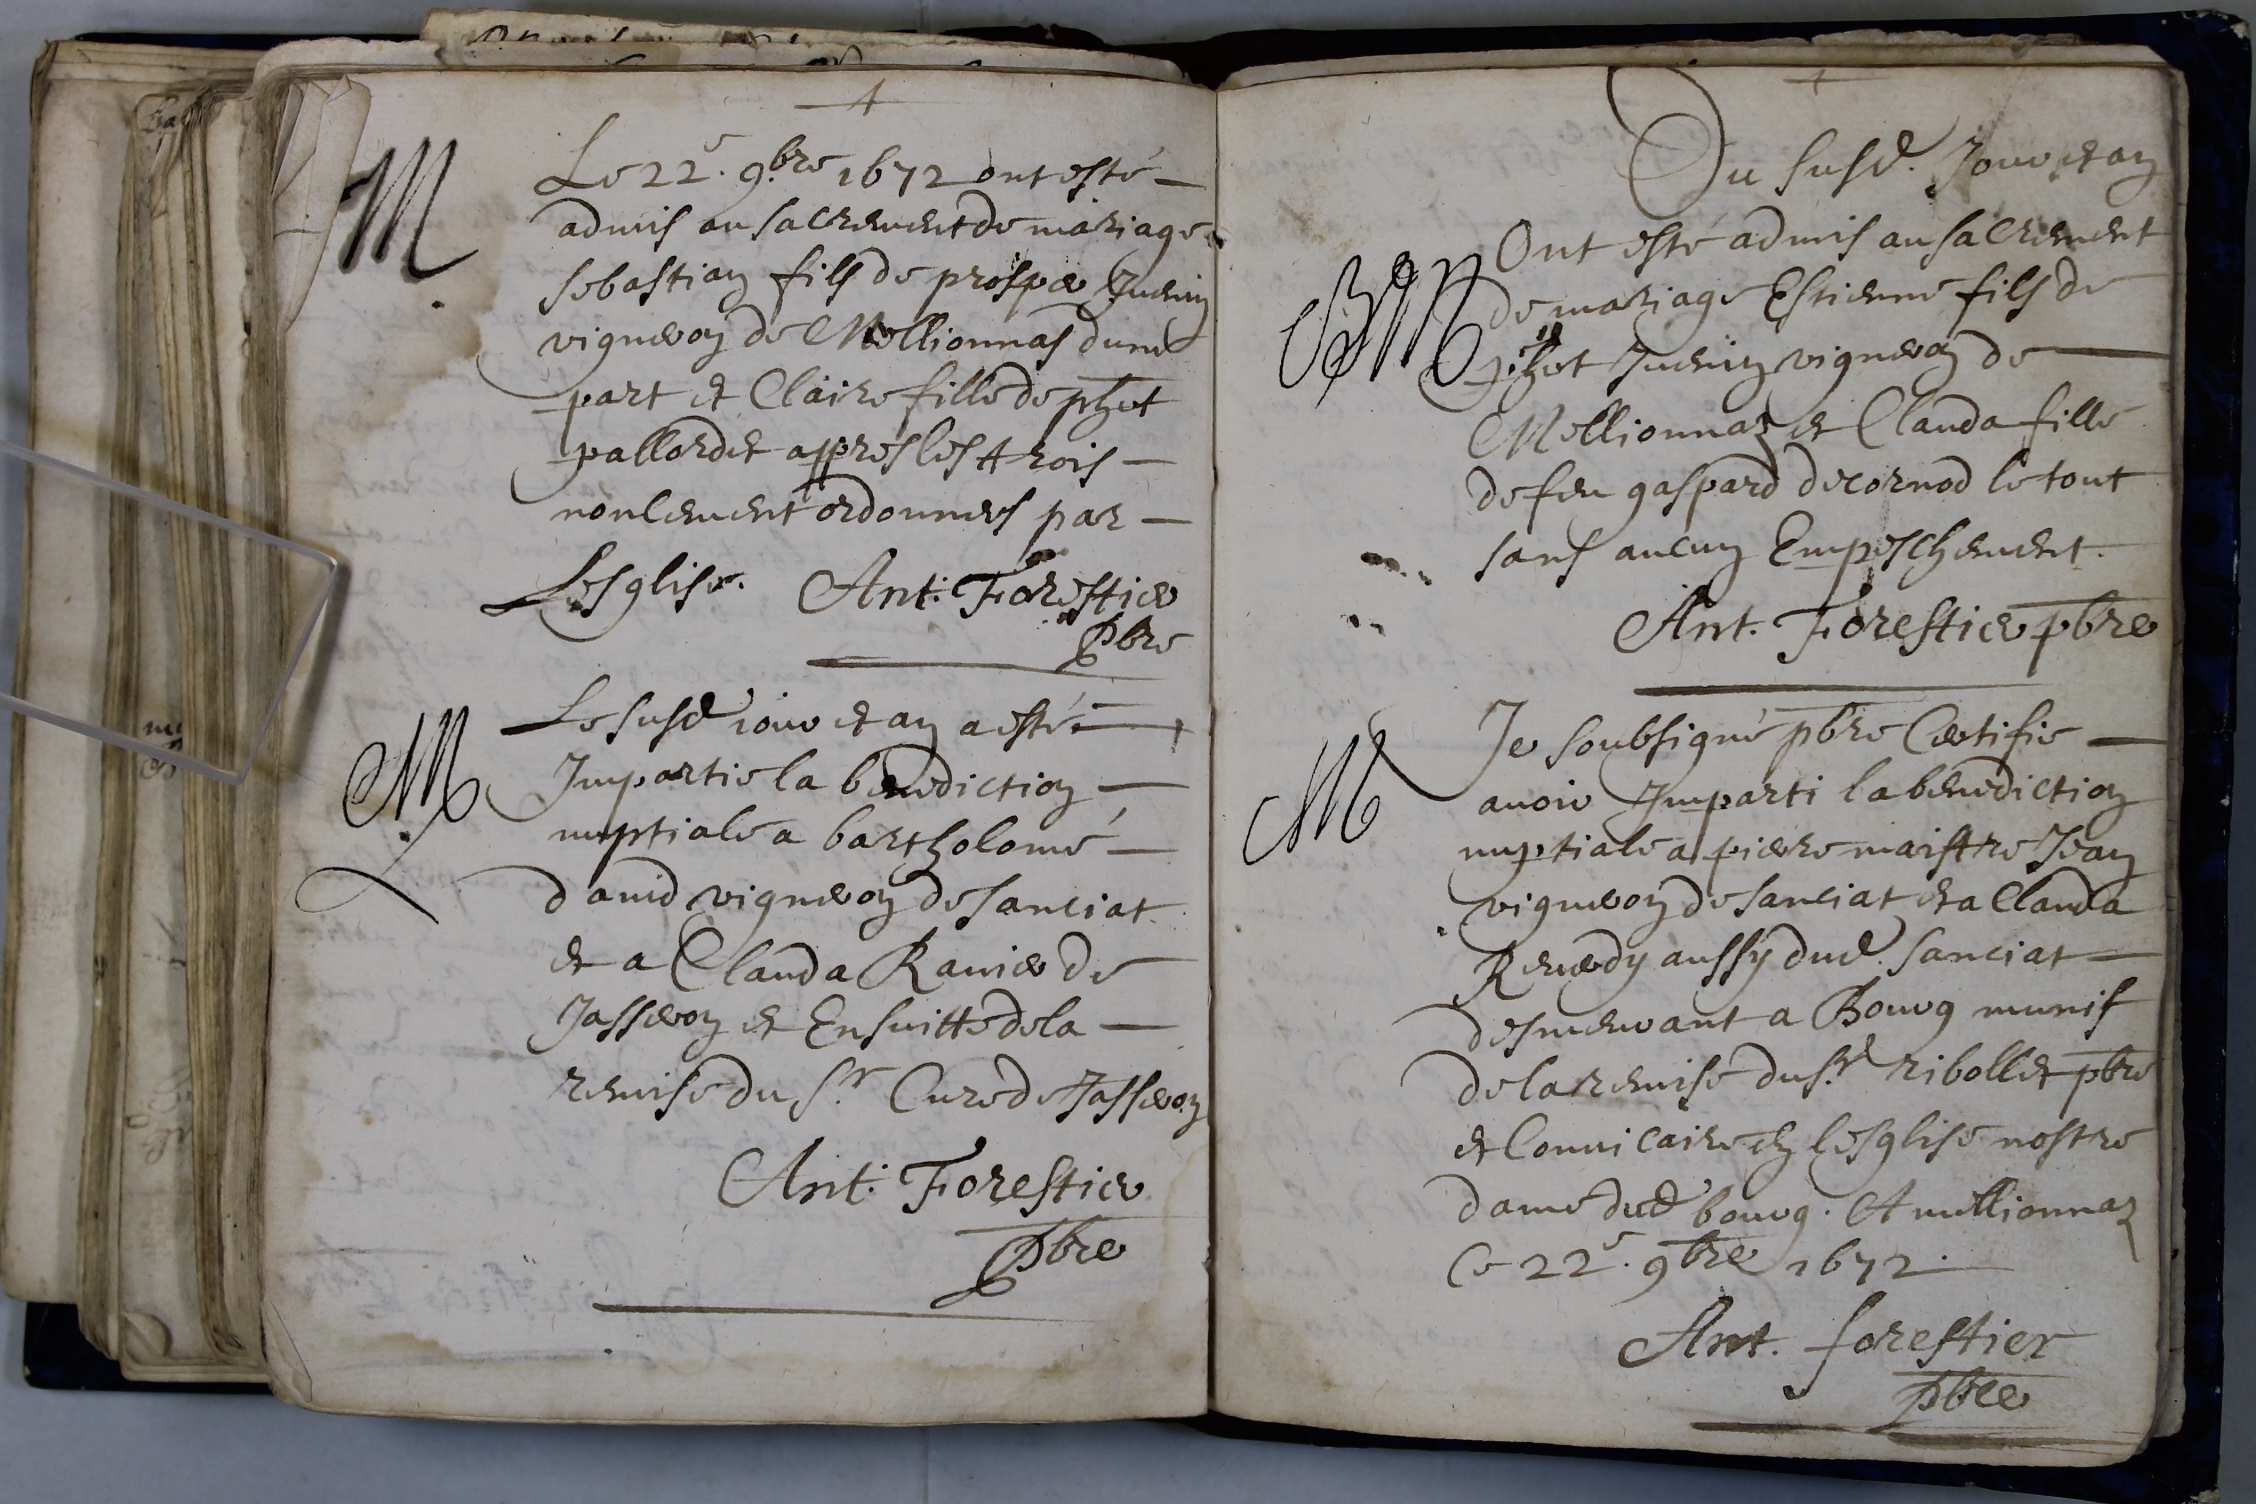 M
Le 22e. 9.bre 1672 ont esté
admis au sacrement de mariage
sebastian fils de prosper Juenin
vigneron de Mellionnas dune
part et Claire fille de phet
pallordet appres les trois
noncement ordonnes par
Lesglise. Ant: Forestier
Pbre
M
Le susd jour et an a esté
Impartie la benediction
nuptiale a bartholomé
david vigneron de sanciat
et a Clauda Ravier de
Jasseron et Ensuitte de la
remise du Sr Cure de Jasseron
Ant: Forestier
Pbre
Du susd. Jour et an
Ont esté admis au sacrement
M
de mariage Estienne fils de
Juenin vigneron de
Mellionnaz et Clauda fille
de feu gaspard decornod le tout
sans aucun Empeschement.
Ant. Forestier pbre
M
Je soubsigné pbre Certifie
avoir Imparti la benediction
nuptiale a pierre maistre Jean
vigneron de sanciat et a Clauda
aussy dud. Sanciat
desmeurant a Bourg munis
de la remise du sr ribollet pbre
et Convicaire en lesglise nostre
dame dud bourg. A mellionnaz
Ce 22e. 9bre 1672.
Ant. forestier
pbre